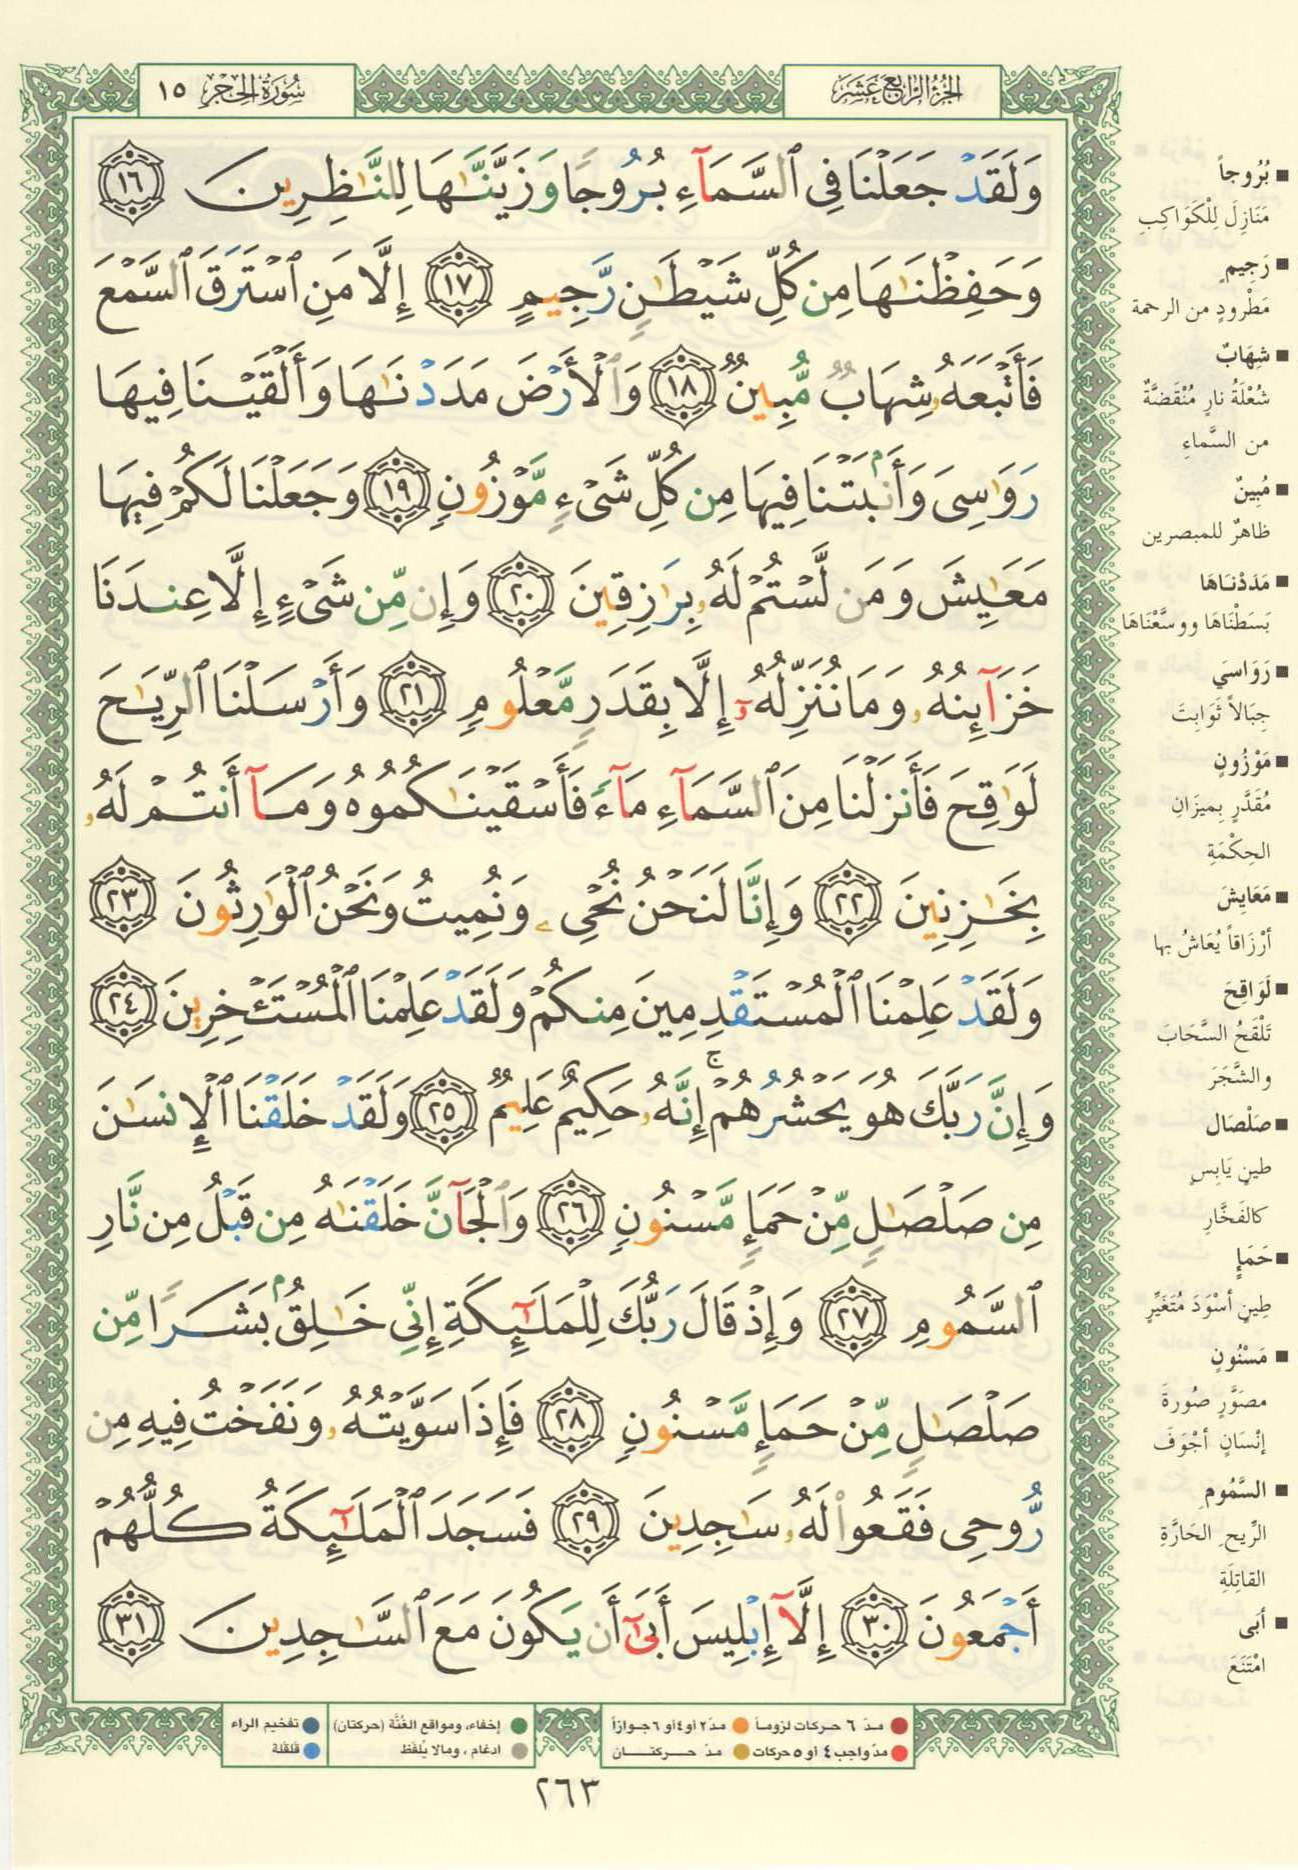 الجزء الرابع عشر
سورة الحجر ١٥
وَلَقَدْ جَعَلْنَا فِى ٱلسَّمَآءِ بُرُوجًا وَزَيَّنَّـٰهَا لِلنَّـٰظِرِينَ ١٦
وَحَفِظْنَـٰهَا مِن كُلِّ شَيْطَـٰنٍ رَّجِيمٍ ١٧ إِلَّا مَنِ ٱسْتَرَقَ ٱلسَّمْعَ
فَأَتْبَعَهُۥ شِهَابٌ مُّبِينٌ ١٨ وَٱلْأَرْضَ مَدَدْنَـٰهَا وَأَلْقَيْنَا فِيهَا
رَوَٰسِىَ وَأَنۢبَتْنَا فِيهَا مِن كُلِّ شَىْءٍ مَّوْزُونٍ ١٩ وَجَعَلْنَا لَكُمْ فِيهَا
مَعَـٰيِشَ وَمَن لَّسْتُمْ لَهُۥ بِرَٰزِقِينَ ٢٠ وَإِن مِّن شَىْءٍ إِلَّا عِندَنَا
خَزَآئِنُهُۥ وَمَا نُنَزِّلُهُۥٓ إِلَّا بِقَدَرٍ مَّعْلُومٍ ٢١ وَأَرْسَلْنَا ٱلرِّيَـٰحَ
لَوَٰقِحَ فَأَنزَلْنَا مِنَ ٱلسَّمَآءِ مَآءً فَأَسْقَيْنَـٰكُمُوهُ وَمَآ أَنتُمْ لَهُۥ
بِخَـٰزِنِينَ ٢٢ وَإِنَّا لَنَحْنُ نُحْىِۦ وَنُمِيتُ وَنَحْنُ ٱلْوَٰرِثُونَ ٢٣
وَلَقَدْ عَلِمْنَا ٱلْمُسْتَقْدِمِينَ مِنكُمْ وَلَقَدْ عَلِمْنَا ٱلْمُسْتَـْٔخِرِينَ ٢٤
وَإِنَّ رَبَّكَ هُوَ يَحْشُرُهُمْ ۚ إِنَّهُۥ حَكِيمٌ عَلِيمٌ ٢٥ وَلَقَدْ خَلَقْنَا ٱلْإِنسَـٰنَ
مِن صَلْصَـٰلٍ مِّنْ حَمَإٍ مَّسْنُونٍ ٢٦ وَٱلْجَآنَّ خَلَقْنَـٰهُ مِن قَبْلُ مِن نَّارِ
ٱلسَّمُومِ ٢٧ وَإِذْ قَالَ رَبُّكَ لِلْمَلَـٰٓئِكَةِ إِنِّى خَـٰلِقٌۢ بَشَرًا مِّن
صَلْصَـٰلٍ مِّنْ حَمَإٍ مَّسْنُونٍ ٢٨ فَإِذَا سَوَّيْتُهُۥ وَنَفَخْتُ فِيهِ مِن
رُّوحِى فَقَعُوا۟ لَهُۥ سَـٰجِدِينَ ٢٩ فَسَجَدَ ٱلْمَلَـٰٓئِكَةُ كُلُّهُمْ
أَجْمَعُونَ ٣٠ إِلَّآ إِبْلِيسَ أَبَىٰٓ أَن يَكُونَ مَعَ ٱلسَّـٰجِدِينَ ٣١
■ بُرُوجاً
مَنَازِلَ لِلْكَوَاكِبِ
■ رَجِيمٍ
مَطْرودٍ من الرحمة
■ شِهَابٌ
شُعْلَةُ نارٍ مُنْقَضَّةٌ
من السَّماءِ
■ مُبِينٌ
ظاهرٌ للمبصرين
■ مَدَدْنَاهَا
بَسَطْنَاهَا ووسَّعْنَاهَا
■ رَوَاسِيَ
جِبَالاً ثَوَابِتَ
■ مَوْزُونٍ
مُقَدَّرٍ بِميزَانِ
الحِكْمَةِ
■ مَعَايِشَ
أرْزَاقاً يُعَاشُ بها
■ لَوَاقِحَ
تَلْقَحُ السَّحَابَ
والشَّجَرَ
■ صَلْصَال
طينٍ يَابِسٍ
كالفَخَّارِ
■ حَمَإٍ
طِينٍ أسْوَدَ مُتَغَيِّرٍ
■ مَسْنُونٍ
مصَوَّرٍ صُورةَ
إنْسَانٍ أجْوَفَ
■ السَّمُومِ
الرِّيحِ الحَارَّةِ
القاتِلَةِ
■ أبَى
امْتَنَعَ
مـد ٦ حركات لزوماً
مدّ ٢ أو ٤ أو ٦ جوازاً
مدّ واجب ٤ أو ٥ حركات
مد حركتان
إخفاء، ومواقع الغُنَّة (حركتان)
تفخيم الراء
ادغام، ومالا يُلفَظ
قلقلة
٢٦٣